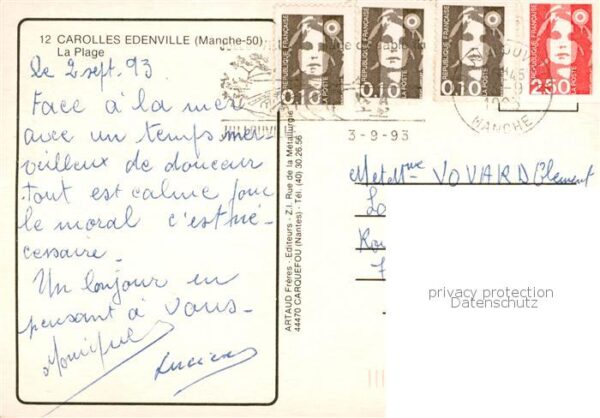 12 CAROLLES EDENVILLE (Manche-50)
La Plage
Le 2 sept. 93
Face à la mer
avec un temps mer-
veilleux de douceur
tout est calme pour
le moral c'est né-
cessaire.
Un bonjour en
pensant à vous-
Monique
Lucien
ARTAUD Frères - Editeurs - Z.I. Rue de la Métallurgie
44470 CARQUEFOU (Nantes) - Tél. (40) 30.26.56
REPUBLIQUE FRANÇAISE
0,10
LA POSTE
REPUBLIQUE FRANÇAISE
0,10
LA POSTE
REPUBLIQUE FRANÇAISE
0,10
LA POSTE
REPUBLIQUE FRANÇAISE
2,50
LA POSTE
MANCHE
3-9-93
M et Mme VOVARD Clement
privacy protection
Datenschutz